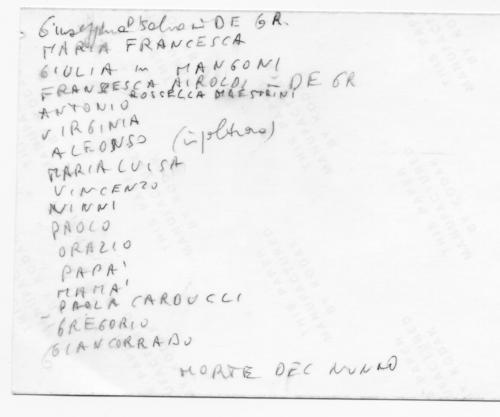 Giuseppina Salva in DE GR.
MARIA FRANCESCA
GIULIA in MANGONI
FRANCESCA AIROLDI in DE GR
ROSSELLA MAESTRINI
ANTONIO
VIRGINIA
ALFONSO (in poltrona)
MARIA LUISA
VINCENZO
NINNI
PAOLO
ORAZIO
PAPA'
MAMA'
PAOLA CARDUCCI
- GREGORIO
GIANCORRADO
MORTE DEL NONNO